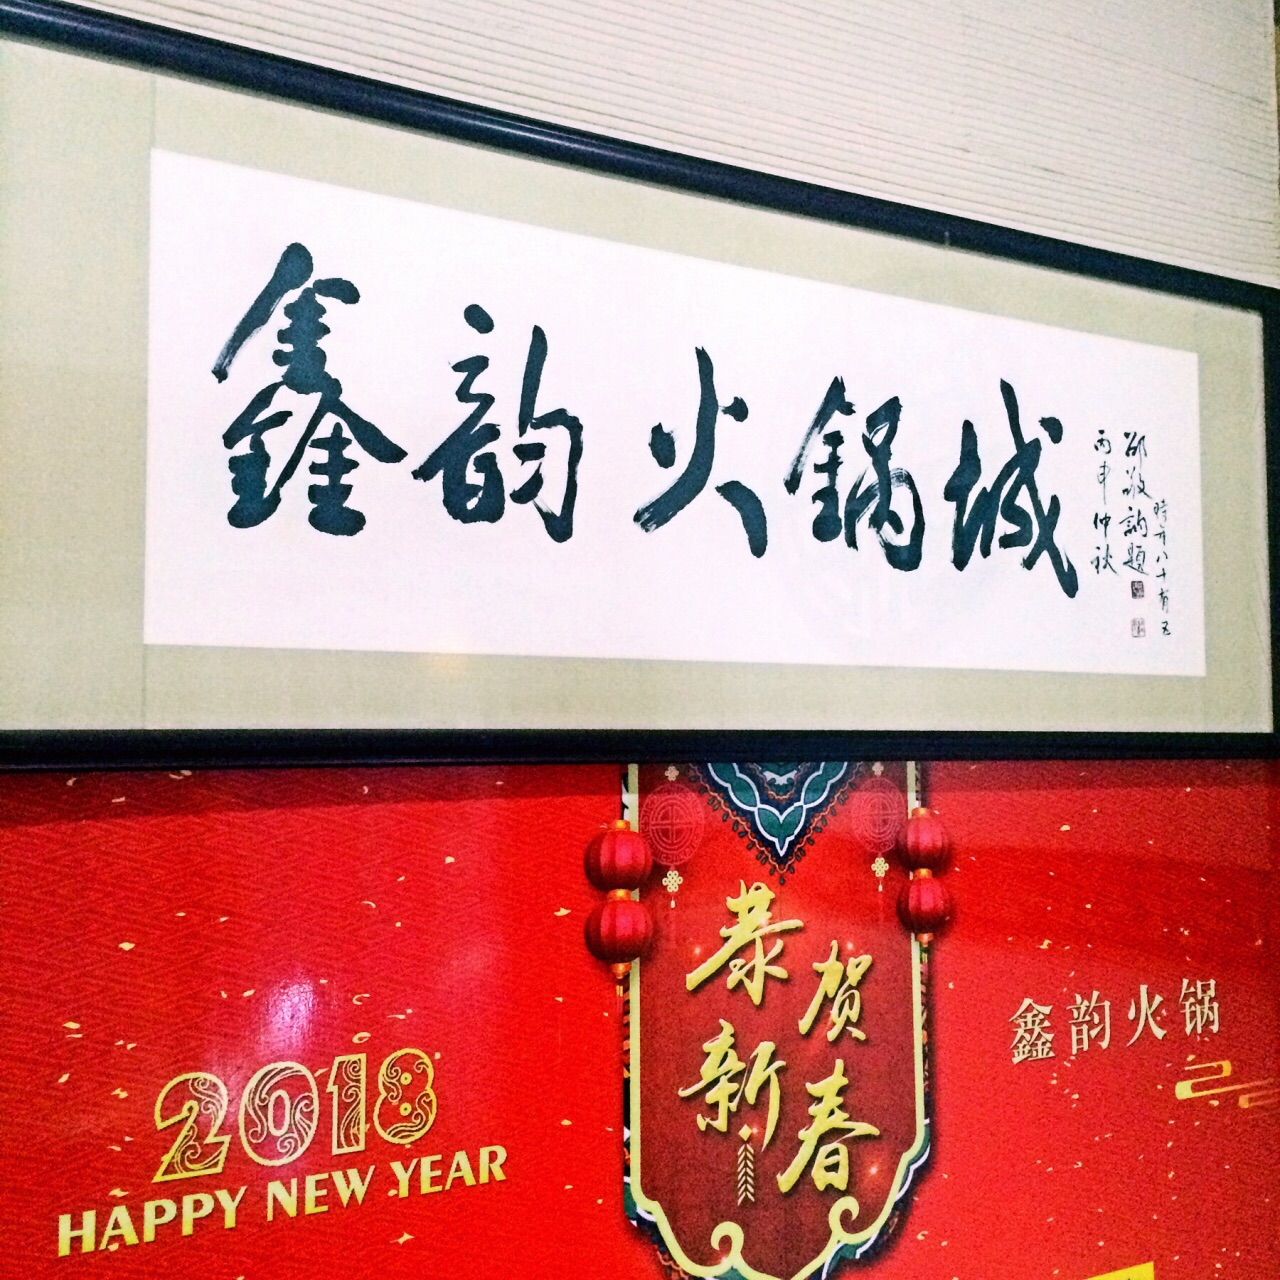 鑫韵火锅城
邵敬訥題
時年八十有五
丙申仲秋
恭贺
新春
鑫韵火锅
2018
HAPPY NEW YEAR